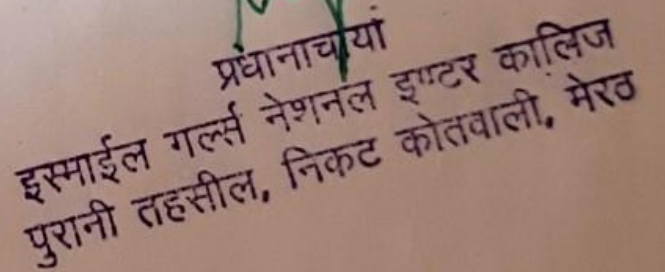 प्रधानाचार्या
इस्माईल गर्ल्स नेशनल इण्टर कालिज
पुरानी तहसील, निकट कोतवाली, मेरठ